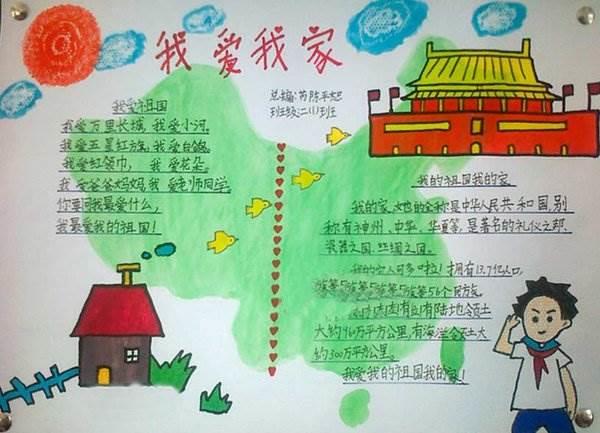 我爱我家
总编:芮陈平旭
班级:二(1)班
我爱祖国
我爱万里长城,我爱小河。
我爱五星红旗,我爱白鸽。
我爱红领巾,我爱花朵。
我爱爸爸妈妈,我爱老师同学。
你要问我最爱什么,
我最爱我的祖国!
我的祖国我的家
我的家,她的全称是中华人民共和国,别
称有神州、中华、华夏等,是著名的礼仪之邦、
瓷器之国、丝绸之国。
我的家人可多啦!拥有13.7亿人口,
56个民族。
有陆地领土
大约960万平方公里,有海洋领土大
约300万平方公里。
我爱我的祖国我的家!